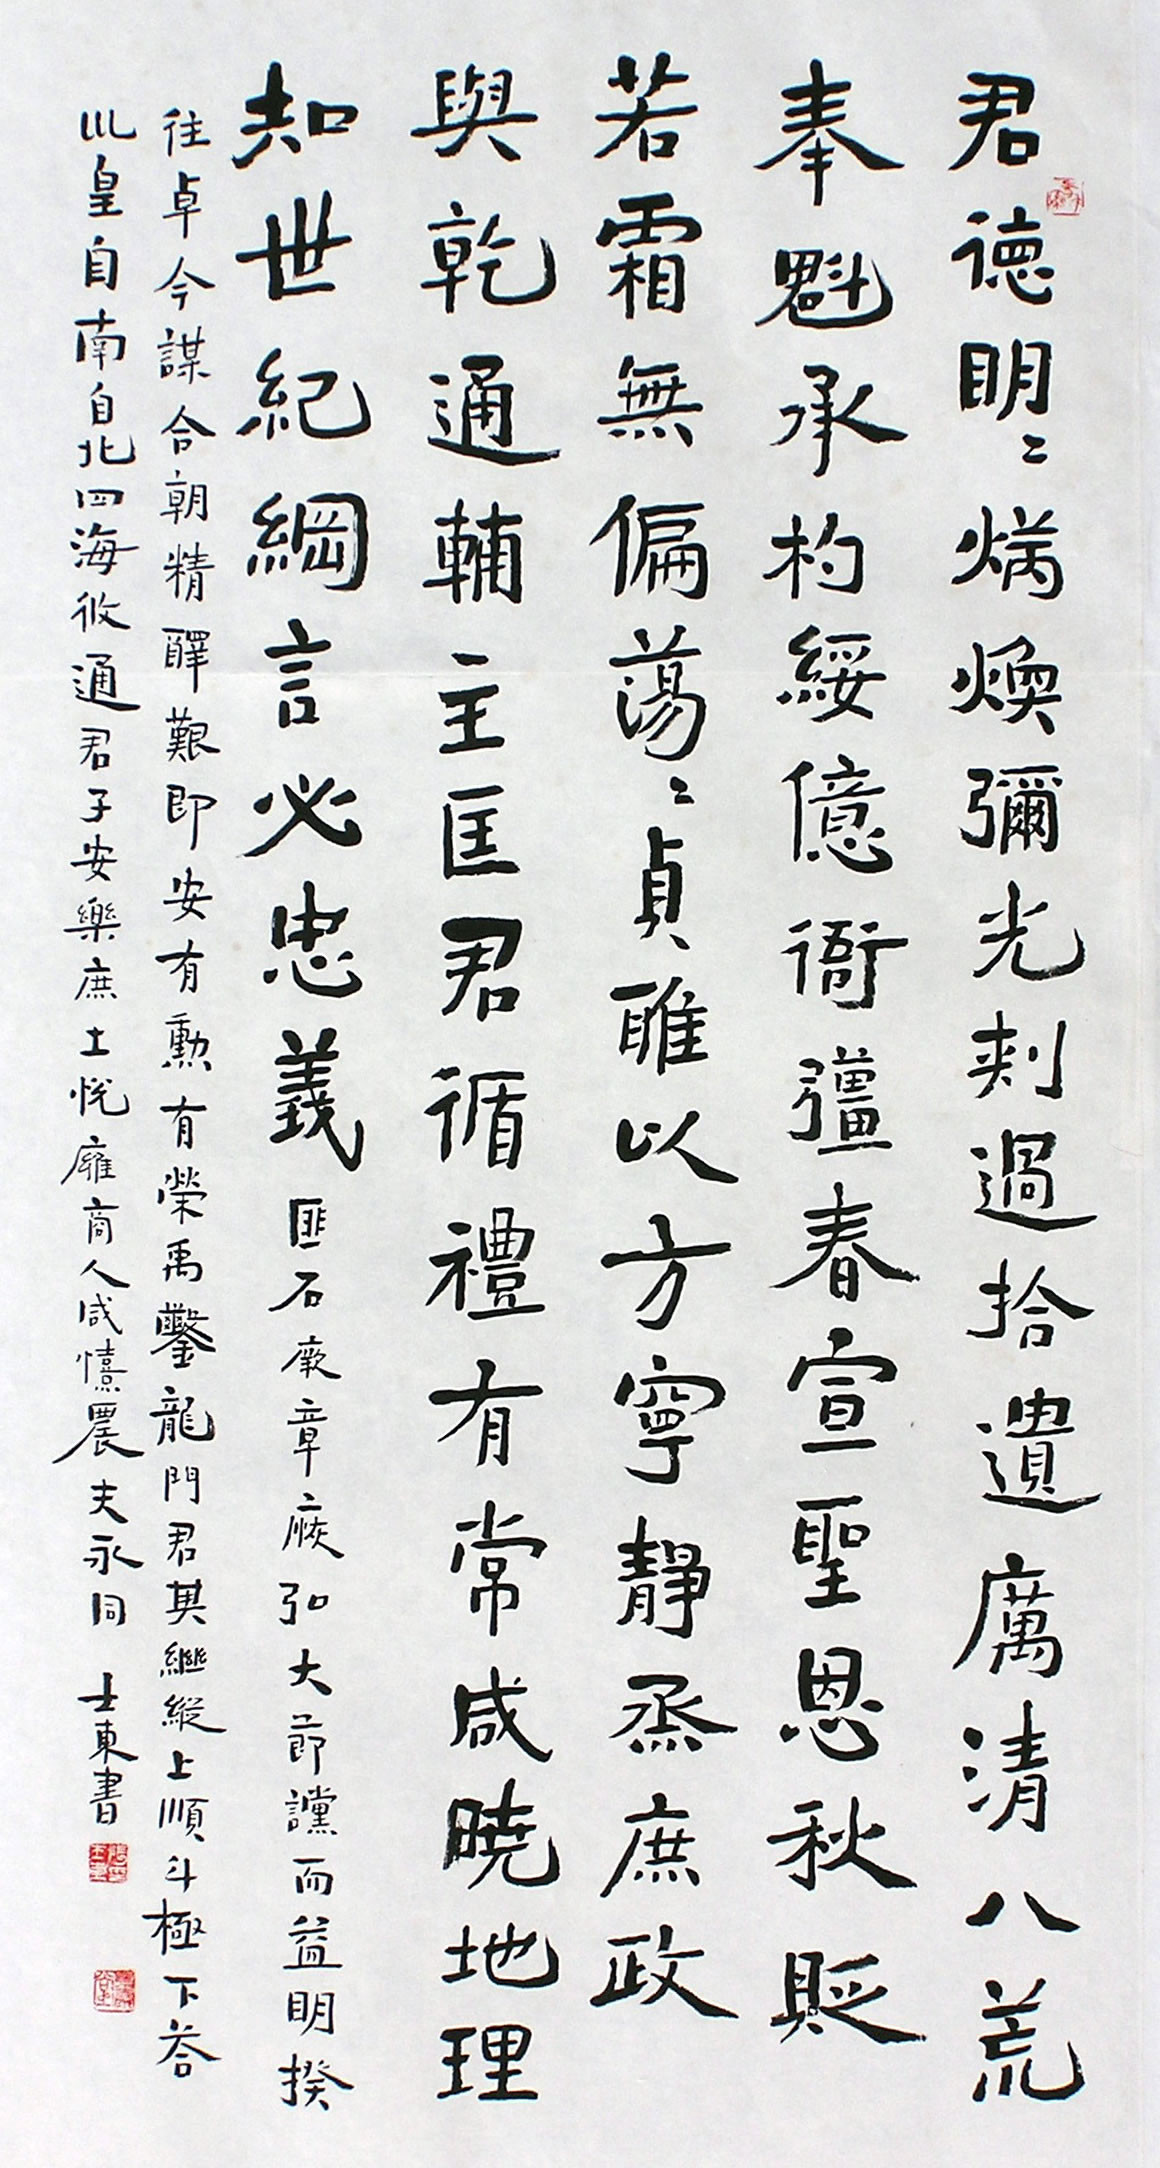 君德明〻炳煥彌光刺過拾遺厲清八荒
奉魁承杓綏億衙彊春宣聖恩秋貶
若霜無偏蕩〻貞雎以方寧靜烝庶政
與乾通輔主匡君循禮有常咸曉地理
知世紀綱言必忠義匪石厥章厥弘大節讜而益明揆
往卓今謀合朝情醳艱即安有勳有榮禹鑿龍門君其繼縱上順斗極下荅
巛皇自南自北四海攸通君子安樂庶士悅雍商人咸憘農夫永同 士東書